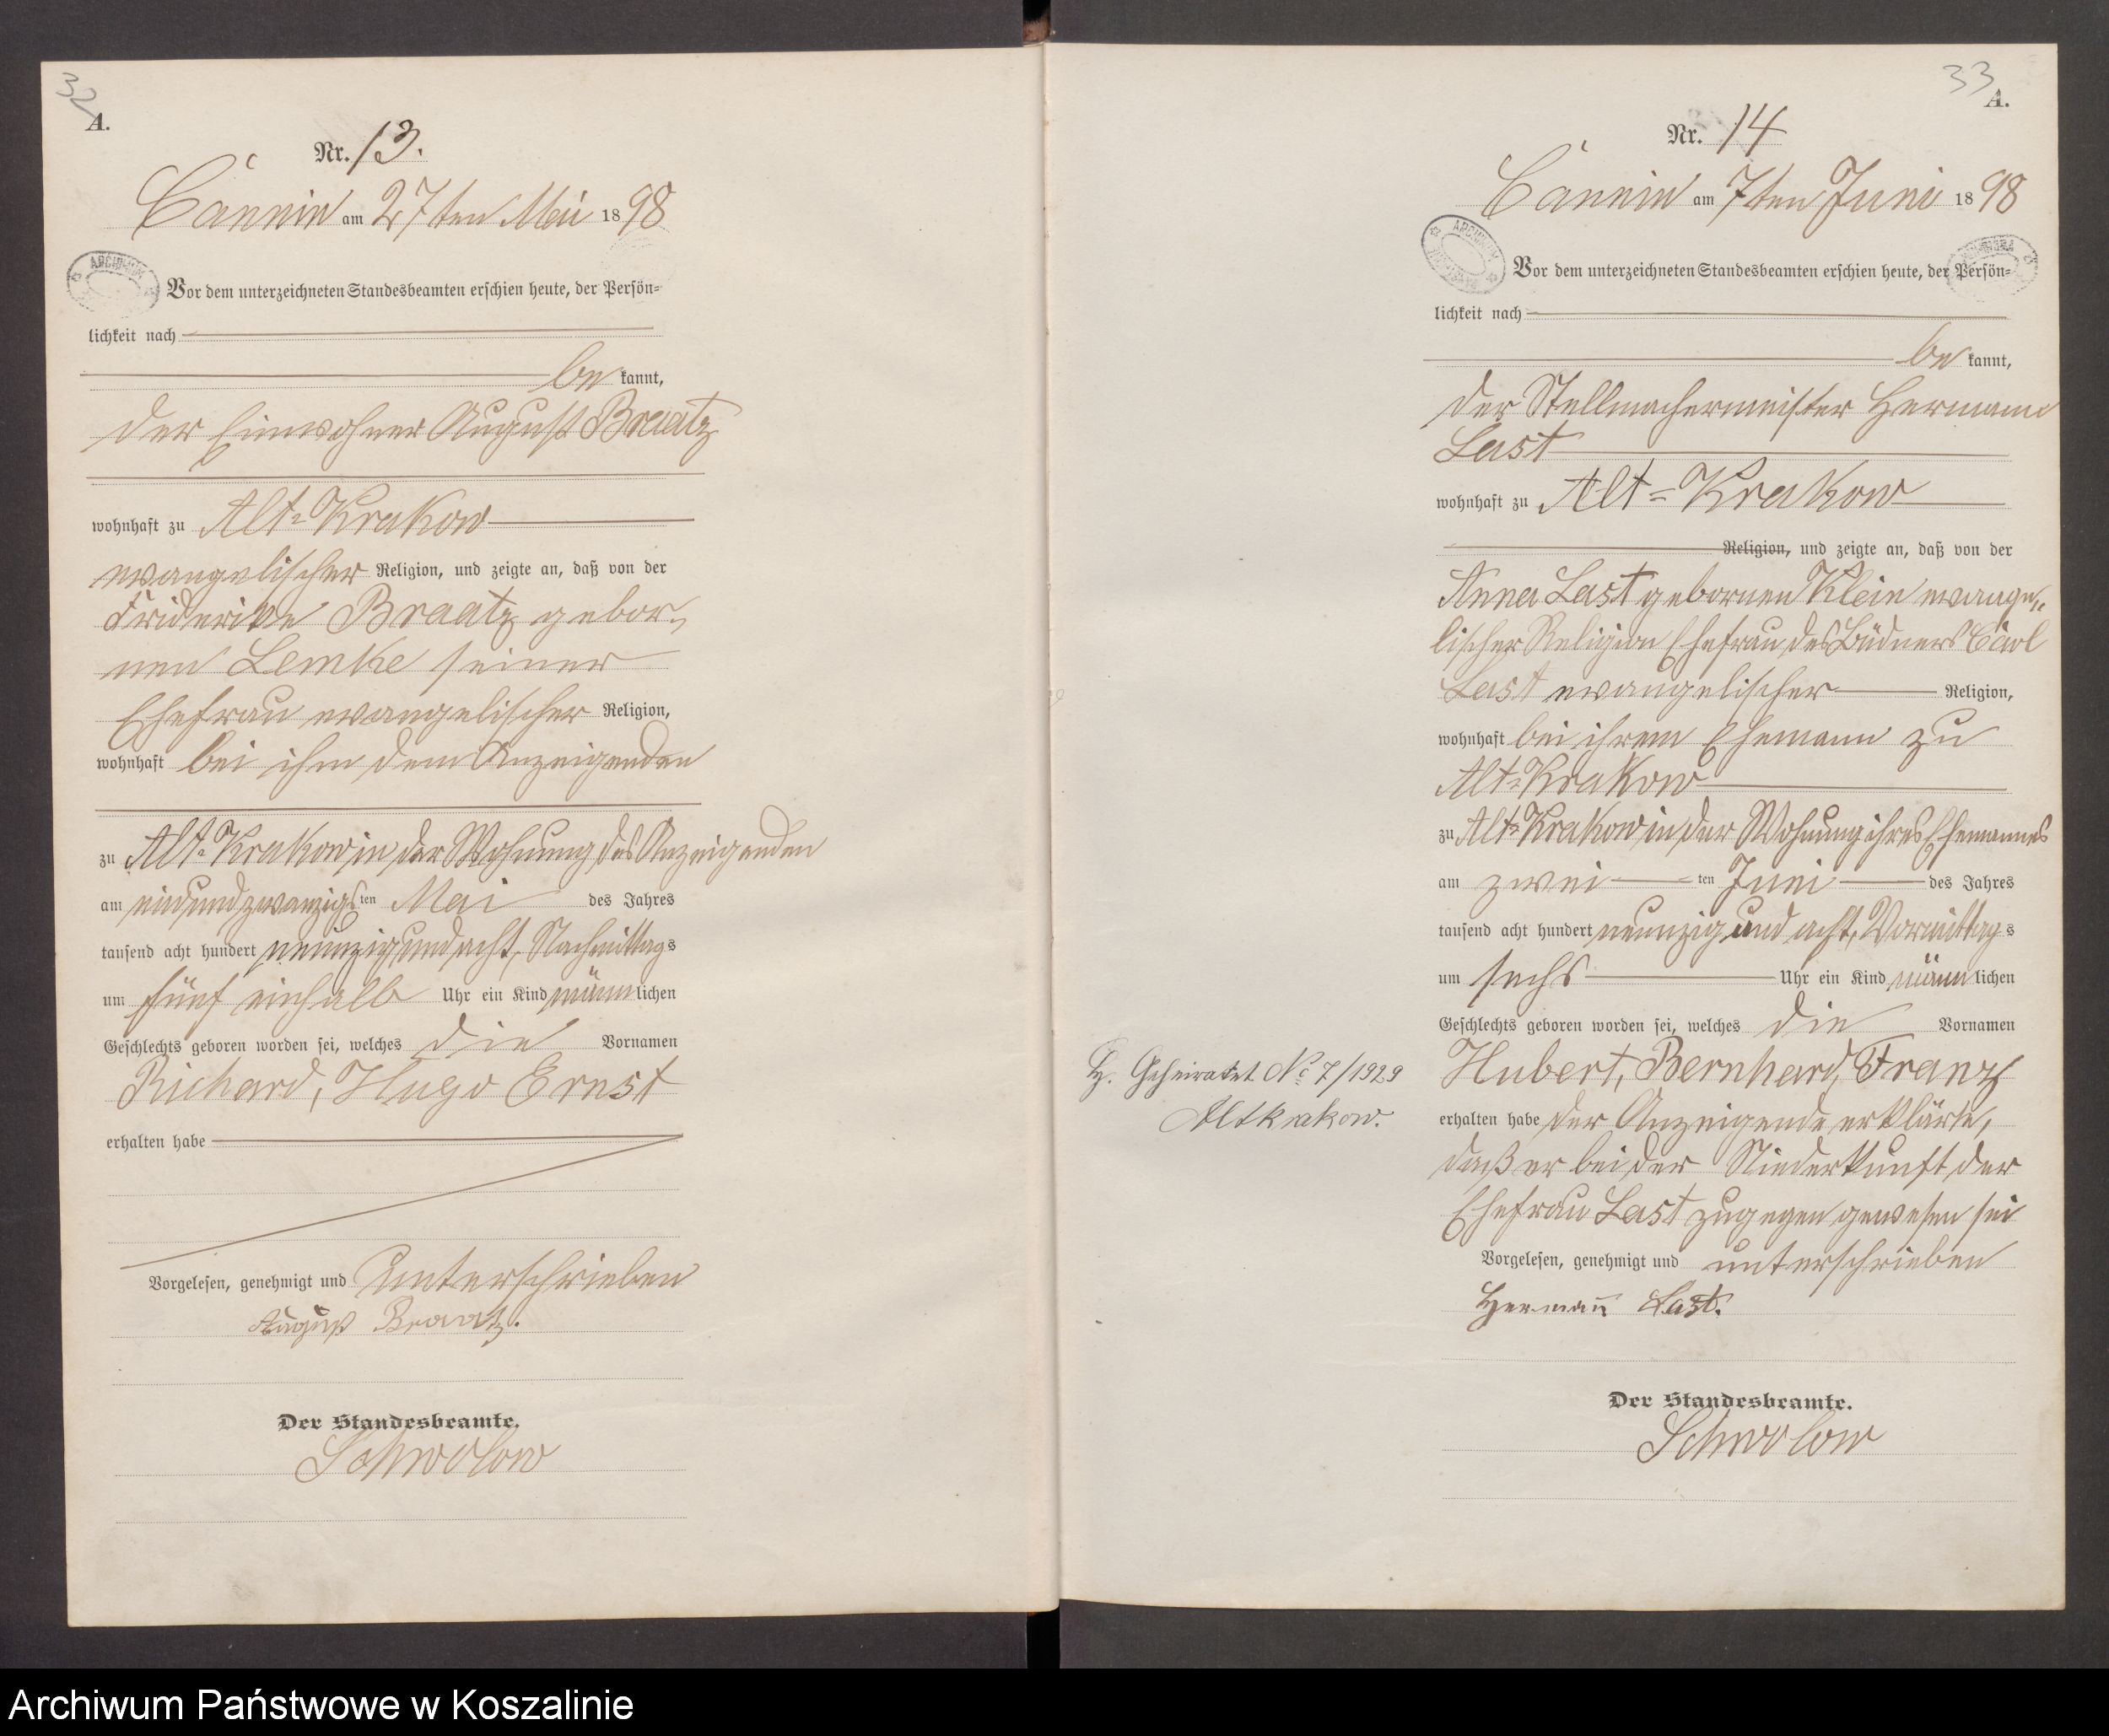 32
A.
Nr. 13.
Cannin am 27ten Mai 1898
ARCHIWUM
Vor dem unterzeichneten Standesbeamten erschien heute, der Persön-
lichkeit nach
be kannt,
der Einwohner August Braatz
wohnhaft zu Alt-Krakow
evangelischer Religion, und zeigte an, daß von der
Friderike Braatz gebor-
nen Lemke seiner
Ehefrau evangelischer Religion,
wohnhaft bei ihm dem Anzeigenden
zu Alt-Krakow in der Wohnung des Anzeigenden
am einundzwanzigsten Mai des Jahres
tausend acht hundert neunzig und acht, Nachmittags
um fünf einhalb Uhr ein Kind männlichen
Geschlechts geboren worden sei, welches die Vornamen
Richard, Hugo Ernst
erhalten habe
Vorgelesen, genehmigt und Unterschrieben
August Braatz.
Der Standesbeamte.
Schwolow
33
A.
Nr. 14
Cannin am 7ten Juni 1898
ARCHIWUM
Vor dem unterzeichneten Standesbeamten erschien heute, der Persön-
lichkeit nach
be kannt,
der Stellmachermeister Hermann
Last
wohnhaft zu Alt-Krakow
Religion, und zeigte an, daß von der
Anna Last gebornen Klein evange-
lischer Religion Ehefrau des Büdners Carl
Last evangelischer Religion,
wohnhaft bei ihrem Ehemann zu
Alt-Krakow
zu Alt-Krakow in der Wohnung ihres Ehemannes
am zwei ten Juni des Jahres
tausend acht hundert neunzig und acht, Vormittags
um sechs Uhr ein Kind männlichen
Geschlechts geboren worden sei, welches die Vornamen
Hubert, Bernhard, Franz
erhalten habe der Anzeigende erklärte,
daß er bei der Niederkunft der
Ehefrau Last zugegen gewesen sei
Vorgelesen, genehmigt und unterschrieben
Hermann Last.
Der Standesbeamte.
Schwolow
Geheiratet No 7/1929
Altkrakow.
Archiwum Państwowe w Koszalinie